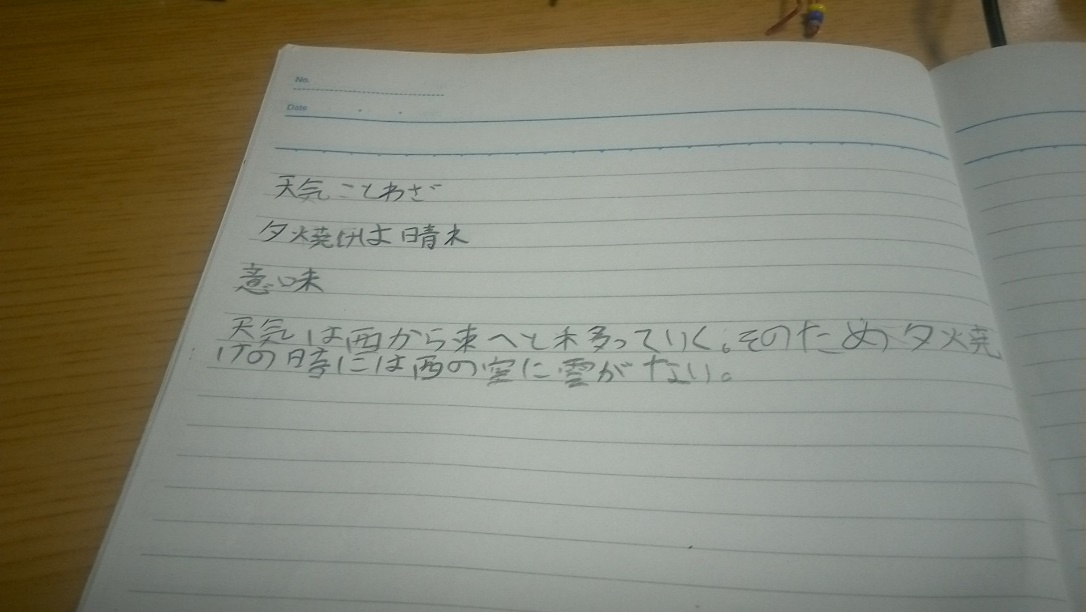 No.
Date
天気ことわざ
夕焼けは晴れ
意味
天気は西から東へと移っていく。そのため、夕焼
けの時には西の空に雲がない。